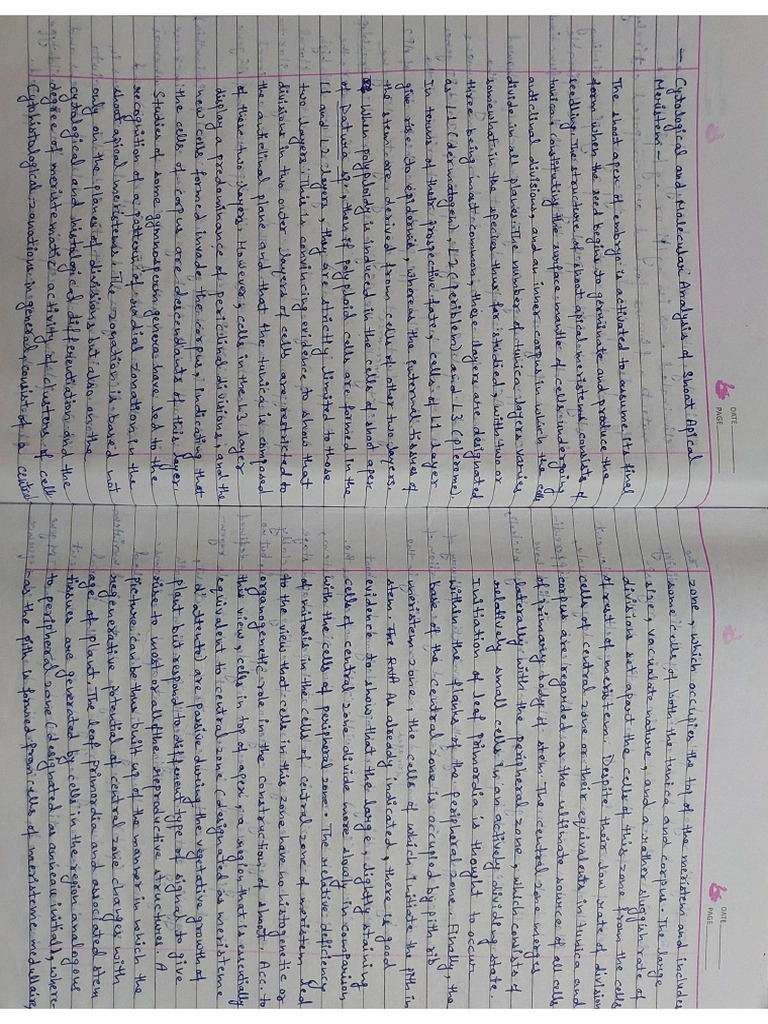 DATE
PAGE
– Cytological and Molecular Analysis of Shoot Apical
Meristem –
The shoot apex of embryo is activated to assume its final
form when the seed begins to germinate and produce the
seedling. The structure of shoot apical meristems consists of
tunica constituting the surface mantle of cells undergoing
anticlinal divisions, and an inner corpus in which the cells
divide in all planes. The number of tunica layers varies
somewhat in the species thus far studied, with two or
three being most common, these layers are designated
as L1 (dermatogen), L2 (periblem) and L3 (plerome).
In terms of their prospective fate, cells of L1 layer
give rise to epidermis, whereas the internal tissues of
the stem are derived from cells of other two layers.
When polyploidy is induced in the cells of shoot apex
of Datura sp., then if polyploid cells are formed in the
L1 and L2 layers, they are strictly limited to those
two layers. This is convincing evidence to show that
divisions in the two outer layers of cells are restricted to
the anticlinal plane and that the tunica is composed
of these two layers. However, cells in the L3 layer
display a predominance of periclinal divisions, and the
new cells formed invade the corpus, indicating that
the cells of corpus are descendants of this layer.
Studies of some gymnosperm genera have led to the
recognition of a pattern of zonation in the
shoot apical meristems. The zonation is based not
only on the planes of divisions but also on the
cytological and histological differentiation and the
degree of meristematic activity of clusters of cell
Cytohistological zonations in general, consist of a central
DATE
PAGE
zone, which occupies the top of the meristem and includes
some cells of both the tunica and corpus. The large
size, vacuolate nature, and a rather sluggish rate of
divisions set apart the cells of this zone from the cells
of rest of meristem. Despite their slow rate of division
cells of central zone or their equivalents in tunica and
corpus are regarded as the ultimate source of all cells
of primary body of stem. The central zone merges
laterally with the peripheral zone, which consists of
relatively small cells in an actively dividing state.
Initiation of leaf primordia is thought to occur
within the flanks of the peripheral zone. Finally, the
base of the central zone is occupied by pith rib
meristem zone, the cells of which initiate the pith in
stem. The As already indicated, there is good
evidence to show that the large, lightly staining
cells of central zone divide more slowly in comparison
with the cells of peripheral zone. The relative deficiency
of mitosis in the cells of central zone of meristem led
to the view that cells in this zone have no histogenetic or
organogenetic role in the construction of shoot. Acc. to
this view, cells in top of apex, a region that is essentially
equivalent to central zone (designated as meristeme
d'attente) are passive during the vegetative growth of
plant but respond to different type of signal to give
rise to most or all of the reproductive structures. A
picture can be thus built up of the manner in which the
regenerative potential of central zone changes with
age of plant. The leaf primordia and associated stem
tissues are generated by cells in the region analogous
to peripheral zone (designated as anneau initial), where-
as the pith is formed from cells of meristeme medullaire,